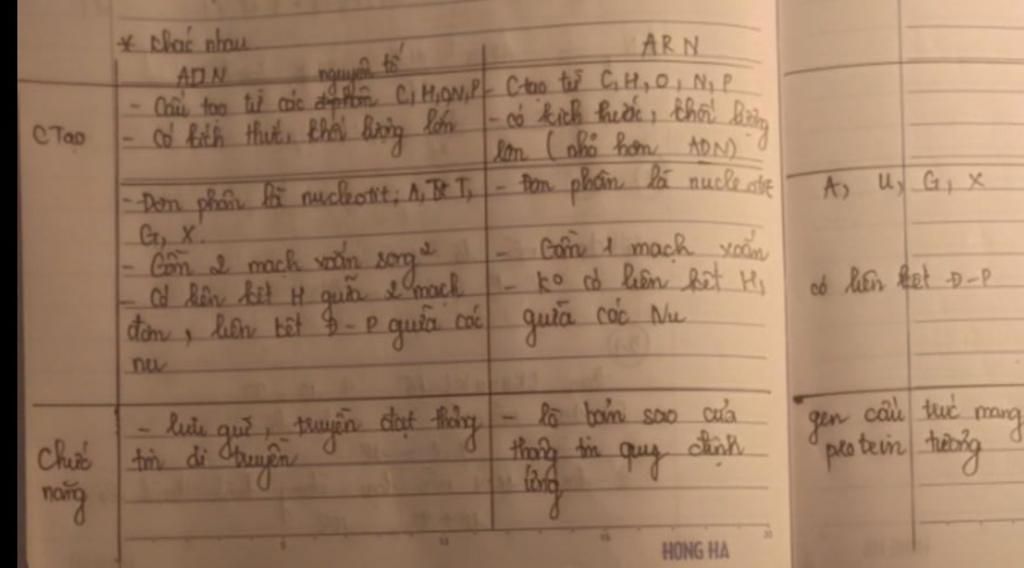 * Khác nhau
ADN
ARN
CTạo
- Cấu tạo từ các nguyên tố C, H, O, N, P
- Có kích thướ, khối lượng lớn
- Ctạo từ C, H, O, N, P
- có kích thước, khối lượng
lớn (nhỏ hơn ADN)
- Đơn phân là nucleotit; A, T,
G, X.
- Gồm 2 mạch xoắn song²
- Có liên kết H giữa 2 mạch
đơn, liên kết Đ-P giữa các
nu
- Đơn phân là nucleotit A, U, G, X
- Gồm 1 mạch xoắn
- Ko có liên kết H, có liên kết Đ-P
giữa các Nu
Chức
năng
- lưu giữ, truyền đạt thông
tin di truyền
- là bản sao của gen cấu trúc mang
thông tin quy định protein tương
ứng
HONG HA